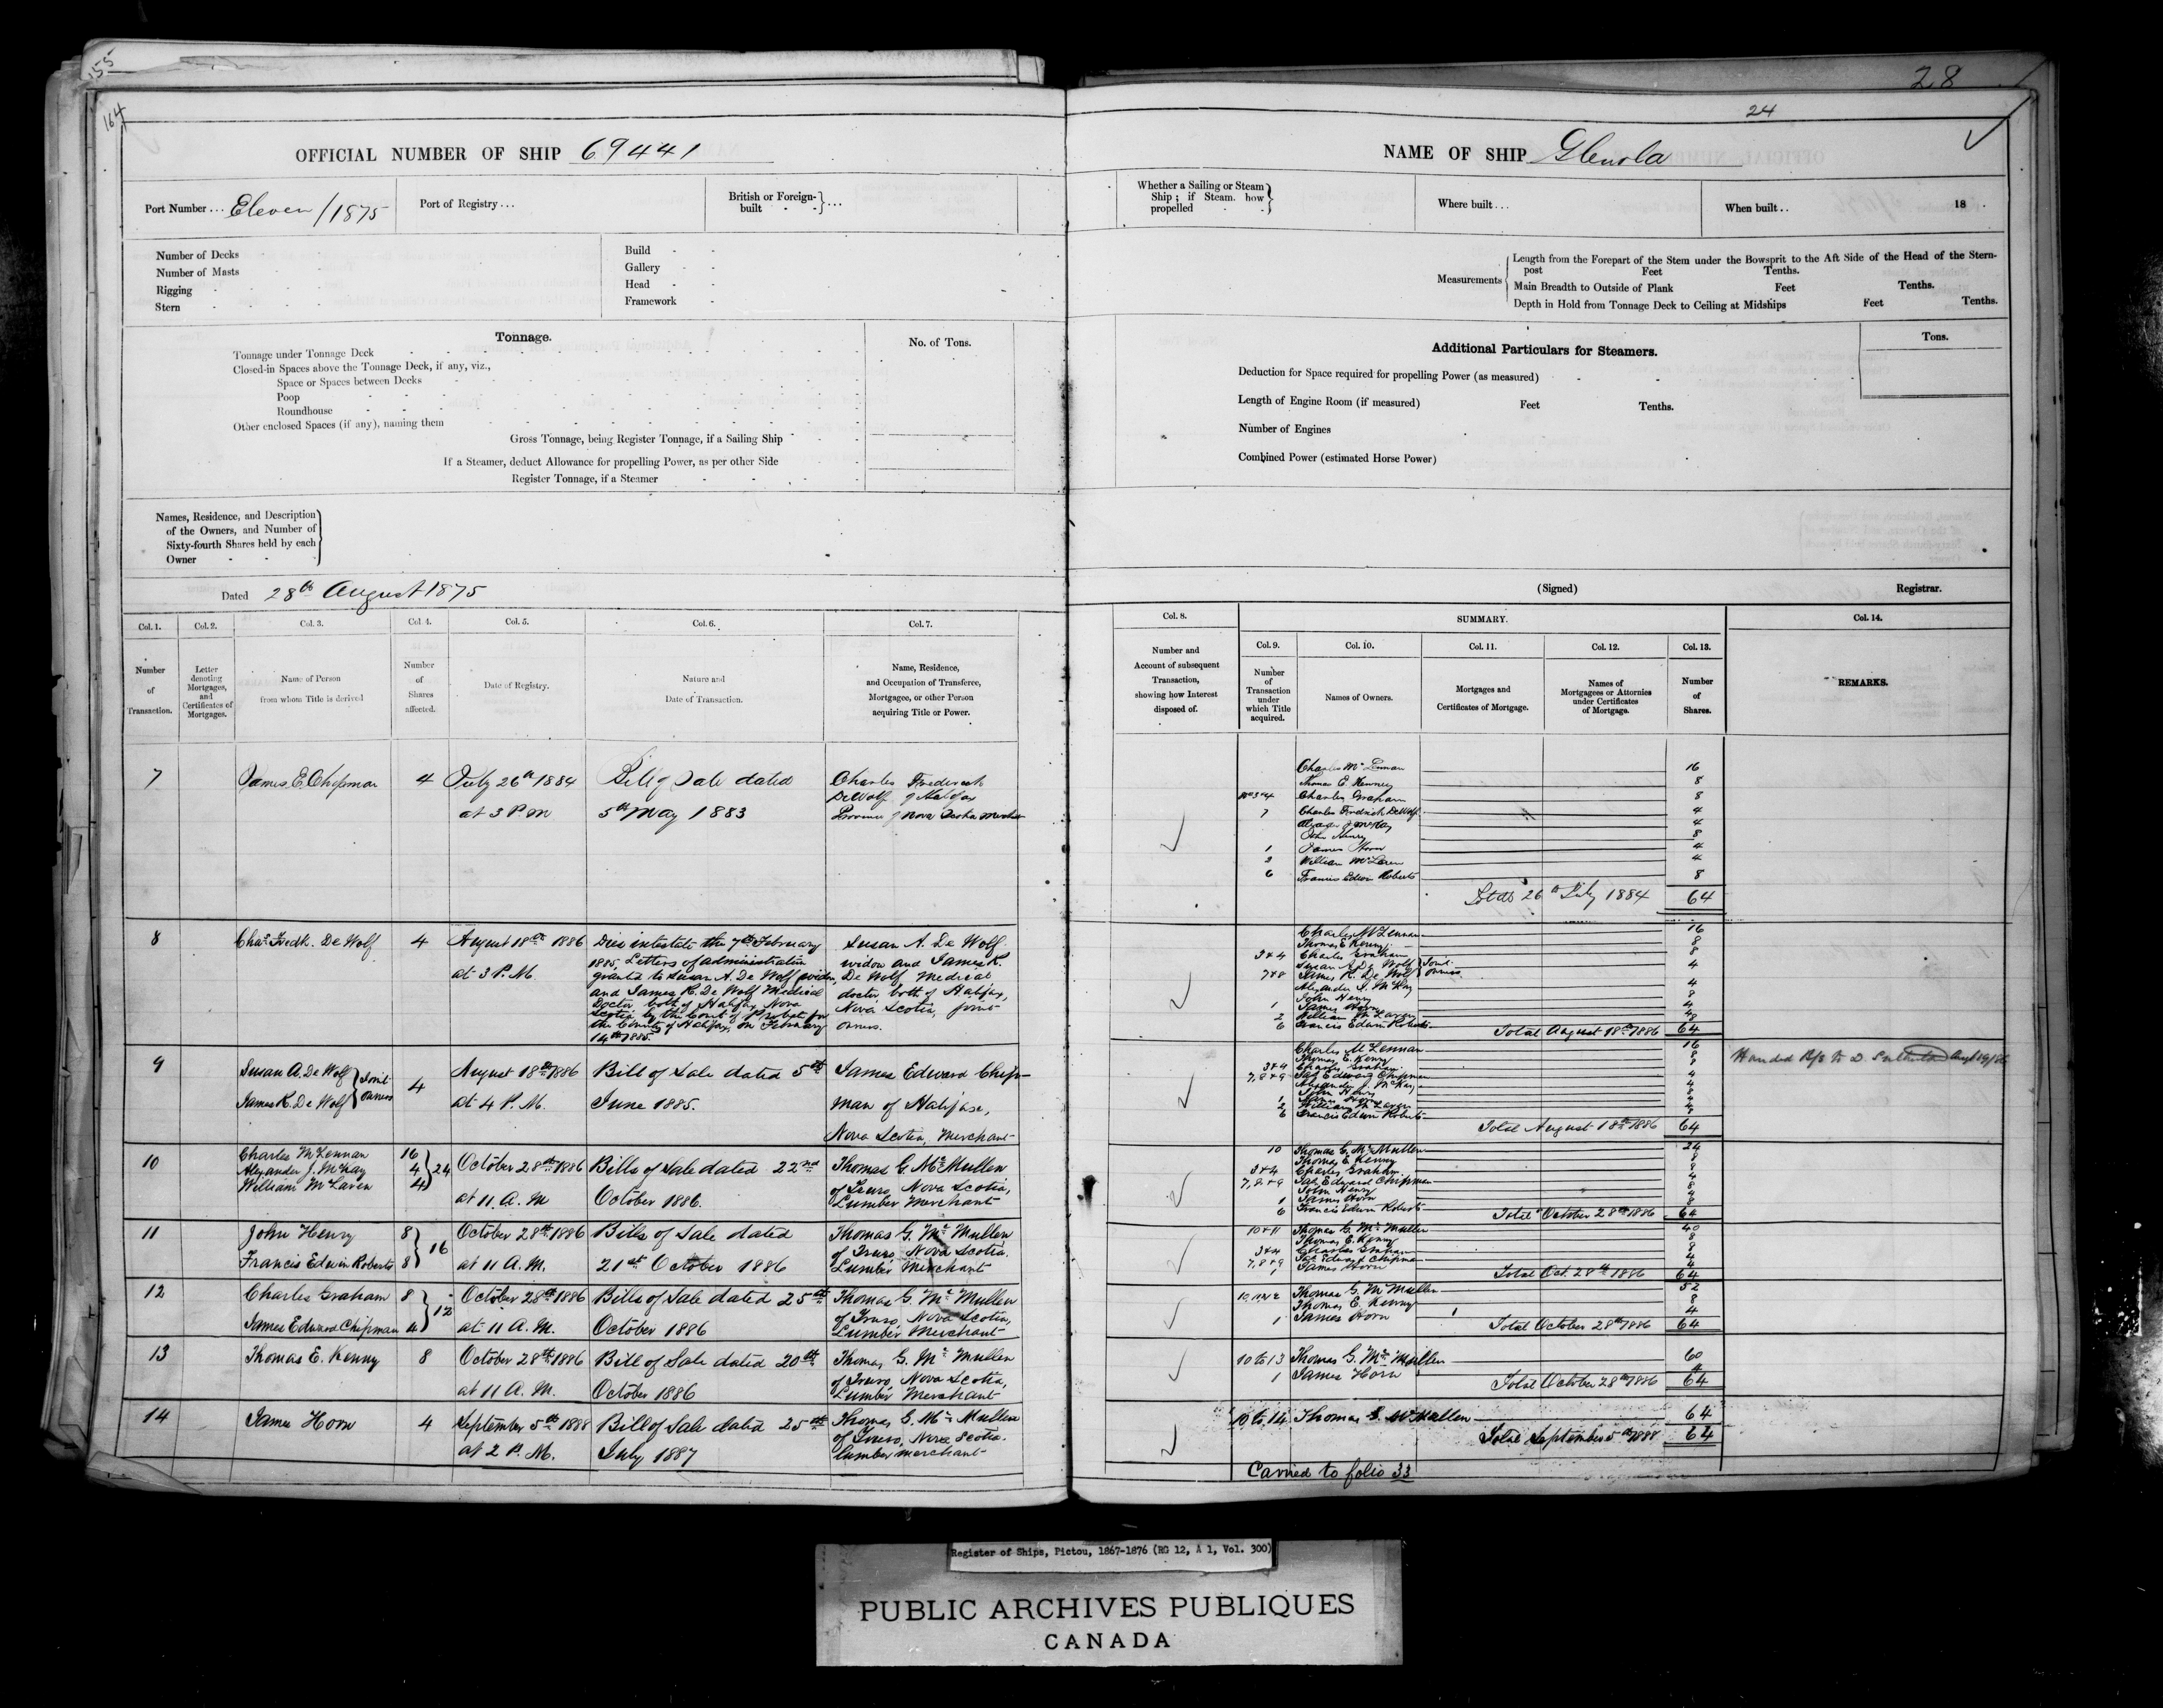 155
164
OFFICIAL NUMBER OF SHIP 69441
Port Number... Eleven/1875
Port of Registry...
British or Foreign-built - - } ...
Number of Decks
Number of Masts
Rigging
Stern
Build
Gallery
Head
Framework
Tonnage.
No. of Tons.
Tonnage under Tonnage Deck
Closed-in Spaces above the Tonnage Deck, if any, viz.,
Space or Spaces between Decks
Poop
Roundhouse
Other enclosed Spaces (if any), naming them
Gross Tonnage, being Register Tonnage, if a Sailing Ship
If a Steamer, deduct Allowance for propelling Power, as per other Side
Register Tonnage, if a Steamer
Names, Residence, and Description
of the Owners, and Number of
Sixty-fourth Shares held by each
Owner
Dated 28th August 1875
Col. 1. Col. 2. Col. 3. Col. 4. Col. 5. Col. 6. Col. 7.
Number of Transaction.
Letter denoting Mortgages, and Certificates of Mortgages.
Name of Person from whom Title is derived
Number of Shares affected.
Date of Registry.
Nature and Date of Transaction.
Name, Residence, and Occupation of Transferee, Mortgagee, or other Person acquiring Title or Power.
7 James E. Chipman 4 July 26th 1884 Bill of Sale dated Charles Frederick
at 3 P.M 5th May 1883 DeWolf of Halifax
Province of Nova Scotia Merchant
8 Chas. Fredk. De Wolf 4 August 18th 1886 Died intestate the 7th February Susan A. De Wolf
1885, Letters of administration widow and James R.
at 3 P.M. granted to Susan A. De Wolf widow, De Wolf Medical
and James R. De Wolf Medical doctor both of Halifax,
Doctor both of Halifax Nova Nova Scotia, joint
Scotia by the Court of Probate for owners.
the County of Halifax, on February
14th 1885.
9 Susan A. De Wolf } Joint 4 August 18th 1886 Bill of Sale dated 5th James Edward Chip-
James R. De Wolf } owners at 4 P.M. June 1885. man of Halifax,
Nova Scotia, Merchant
10 Charles McLennan 16
Alexander J. McKay 4 } 24 October 28th 1886 Bills of Sale dated 22nd Thomas G. McMullen
William McLaren 4 of Truro, Nova Scotia,
at 11 A.M October 1886. Lumber Merchant
11 John Henry 8 } 16 October 28th 1886 Bills of Sale dated Thomas G. McMullen
of Truro, Nova Scotia.
Francis Edwin Roberts 8 at 11 A.M. 21st October 1886 Lumber Merchant
12 Charles Graham 8 } 12 October 28th 1886 Bills of Sale dated 25th Thomas G. McMullen
of Truro, Nova Scotia,
James Edward Chipman 4 at 11 A.M. October 1886 Lumber Merchant
13 Thomas E. Kenny 8 October 28th 1886 Bill of Sale dated 20th Thomas G. McMullen
of Truro, Nova Scotia,
at 11 A.M. October 1886 Lumber Merchant
14 James Horn 4 September 5th 1888 Bill of Sale dated 25th Thomas G. McMullen
of Truro, Nova Scotia.
at 2 P.M. July 1887 Lumber merchant
28
24
NAME OF SHIP Glenola
Whether a Sailing or Steam Ship; if Steam, how propelled
Where built...
When built.. 18 .
Measurements
Length from the Forepart of the Stem under the Bowsprit to the Aft Side of the Head of the Stern-
post Feet Tenths.
Main Breadth to Outside of Plank Feet Tenths.
Depth in Hold from Tonnage Deck to Ceiling at Midships Feet Tenths.
Additional Particulars for Steamers.
Tons.
Deduction for Space required for propelling Power (as measured)
Length of Engine Room (if measured) Feet Tenths.
Number of Engines
Combined Power (estimated Horse Power)
(Signed) Registrar.
Col. 8. SUMMARY. Col. 14.
Col. 9. Col. 10. Col. 11. Col. 12. Col. 13.
Number and Account of subsequent Transaction, showing how Interest disposed of.
Number of Transaction under which Title acquired.
Names of Owners.
Mortgages and Certificates of Mortgage.
Names of Mortgagees or Attornies under Certificates of Mortgage.
Number of Shares.
REMARKS.
Charles McLennan 16
Thomas E. Kenney 8
3 & 4 Charles Graham 8
7 Charles Fredrick DeWolf 4
Alexander J McKay 4
John Henry 8
1 James Horn 4
2 William McLaren 4
6 Francis Edwin Roberts 8
Total 26th July 1884 64
Charles McLennan 16
Thomas E Kenny 8
3 & 4 Charles Graham 8
Susan A De Wolf } Joint
7 & 8 James R. De Wolf } owners 4
Alexander J. McKay 4
John Henry 8
1 James Horn 4
2 William McLaren 4
6 Francis Edwin Roberts 8
Total August 18th 1886 64
Charles McLennan 16
Thomas E. Kenny 8
3 & 4 Charles Graham 8
7, 8 & 9 Jas Edward Chipman 4
Alexander J. McKay 4
John Henry 8
1 James Horn 4
2 William McLaren 4
6 Francis Edwin Roberts 8
Total August 18th 1886 64
Handed B/S to D. Aug 19/86
10 Thomas G. McMullen 24
Thomas E. Kenny 8
3 & 4 Charles Graham 8
7, 8 & 9 Jas Edward Chipman 4
John Henry 8
1 James Horn 4
6 Francis Edwin Roberts 8
Total October 28th 1886 64
10 & 11 Thomas G. McMullen 40
Thomas E. Kenny 8
3 & 4 Charles Graham 8
7, 8 & 9 Jas Edward Chipman 4
1 James Horn 4
Total Oct. 28th 1886 64
10, 11 & 12 Thomas G. McMullen 52
Thomas E. Kenny 8
1 James Horn 4
Total October 28th 1886 64
10 to 13 Thomas G. McMullen 60
1 James Horn 4
Total October 28th 1886 64
10 to 14 Thomas G McMullen 64
Total September 5th 1888 64
Carried to folio 33
Register of Ships, Pictou, 1867-1876 (RG 12, A 1, Vol. 300)
PUBLIC ARCHIVES PUBLIQUES
CANADA